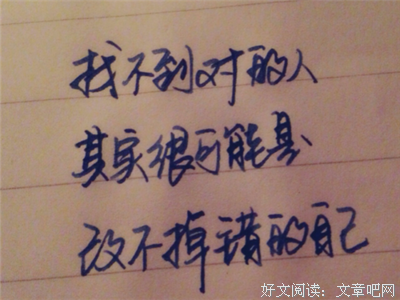 找不到对的人
其实很可能是
改不掉错的自己
好文阅读：文章吧网